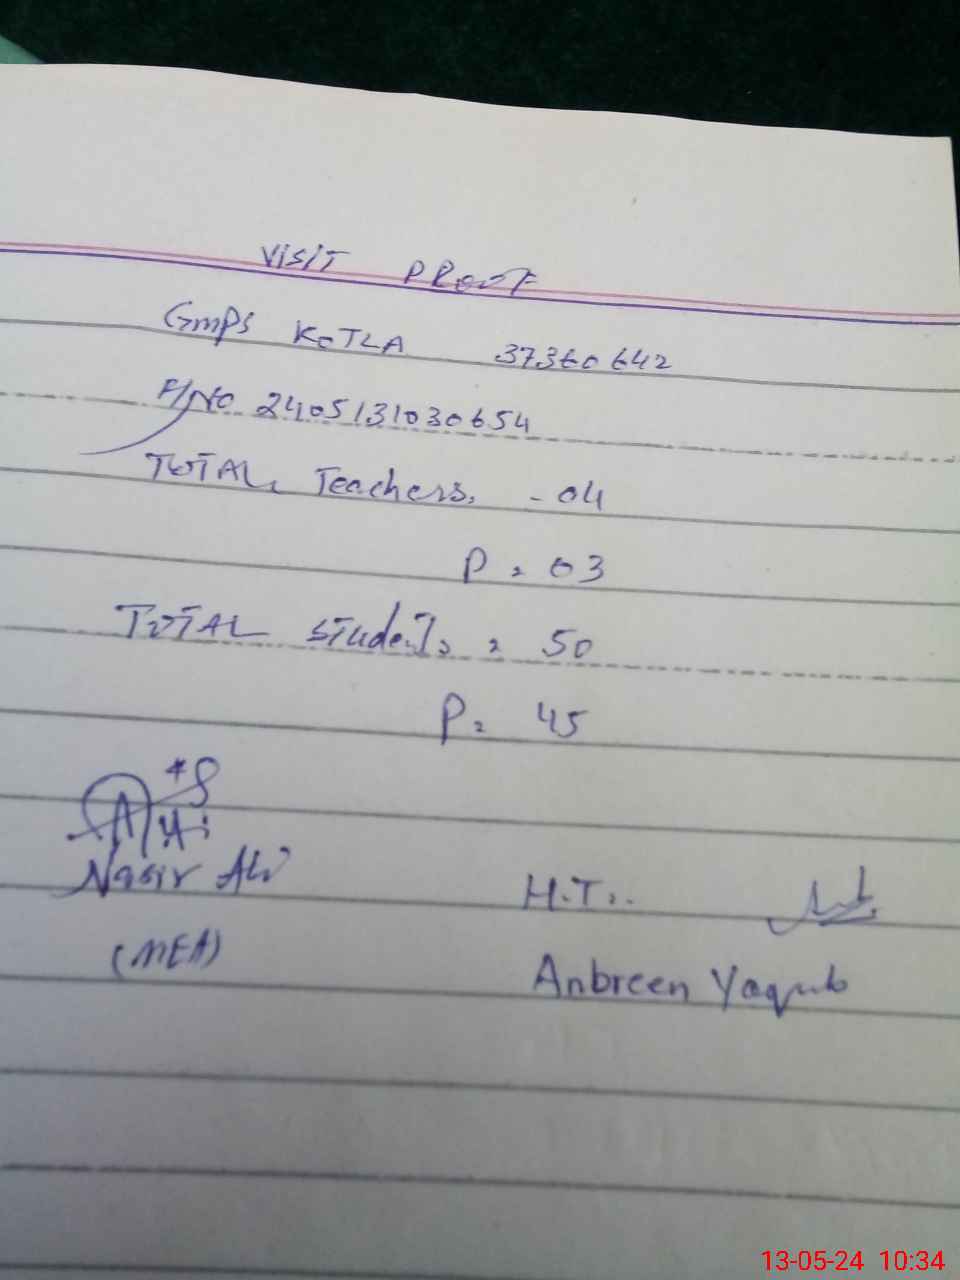 VISIT PROOF
GMPS KOTLA 37360642
F/NO 2405131030654
TOTAL Teachers. - 04
P = 03
TOTAL Students = 50
P = 45
Nasir Ali
(MEA)
H.T..
Anbreen Yaqub
13-05-24 10:34